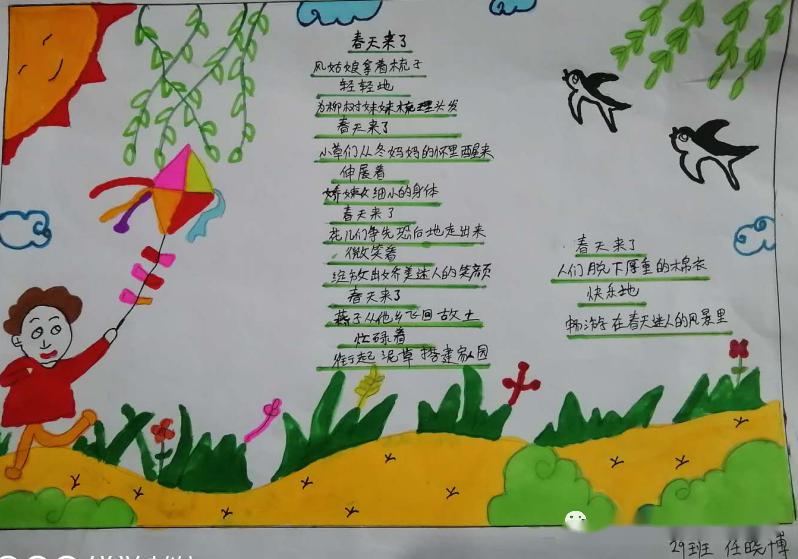 春天来了
风姑娘拿着梳子
轻轻地
为柳树妹妹梳理头发
春天来了
小草们从冬妈妈的怀里醒来
伸展着
娇嫩细小的身体
春天来了
花儿们争先恐后地走出来
微笑着
绽放出娇美迷人的笑颜
春天来了
燕子从他乡飞回故土
忙碌着
衔起泥草搭建家园
春天来了
人们脱下厚重的棉衣
快乐地
畅游在春天迷人的风景里
29班 任晓博